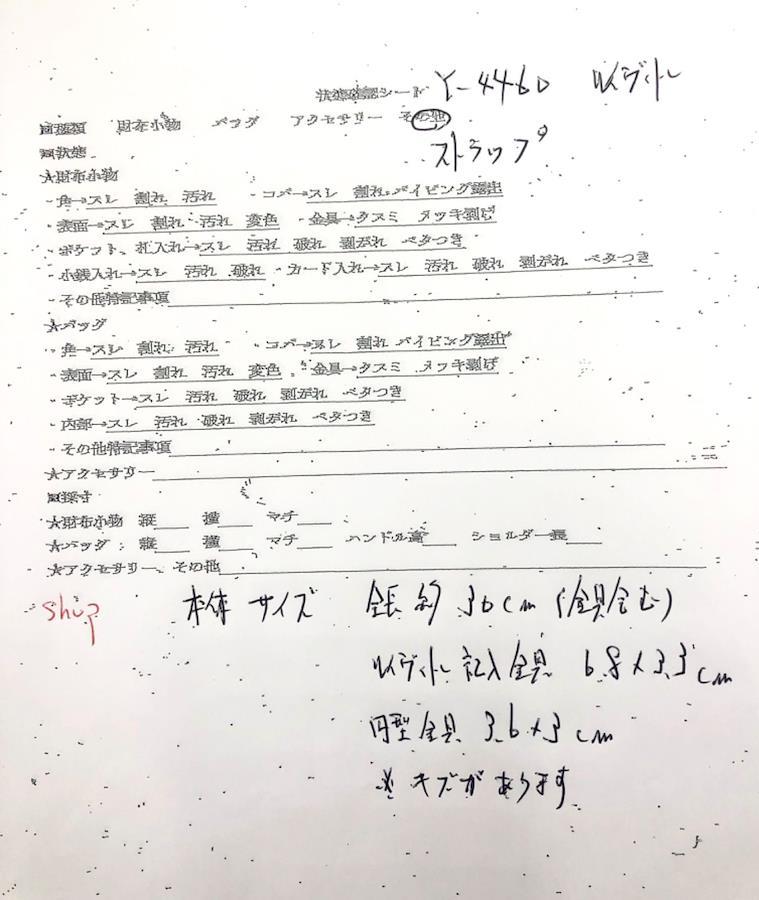 状態確認シート Y-4460 ルイヴィトン
■種類 財布小物 バッグ アクセサリー その他
■状態 ストラップ
★財布小物
・角→スレ 割れ 汚れ ・コバ→スレ 割れ パイピング露出
・表面→スレ 割れ 汚れ 変色 ・金具→クスミ メッキ剥げ
・ポケット、札入れ→スレ 汚れ 破れ 剥がれ ベタつき
・小銭入れ→スレ 汚れ 破れ ・カード入れ→スレ 汚れ 破れ 剥がれ ベタつき
・その他特記事項
★バッグ
・角→スレ 割れ 汚れ ・コバ→スレ 割れ パイピング露出
・表面→スレ 割れ 汚れ 変色 ・金具→クスミ メッキ剥げ
・ポケット→スレ 汚れ 破れ 剥がれ ベタつき
・内部→スレ 汚れ 破れ 剥がれ ベタつき
・その他特記事項
★アクセサリー
■採寸
★財布小物 縦 横 マチ
★バッグ 縦 横 マチ ハンドル高 ショルダー長
★アクセサリー、その他
shop 本体サイズ 全長約36cm(金具含む)
ルイヴィトン記入金具 6.8×3.3cm
円型金具 3.6×3cm
※キズがあります